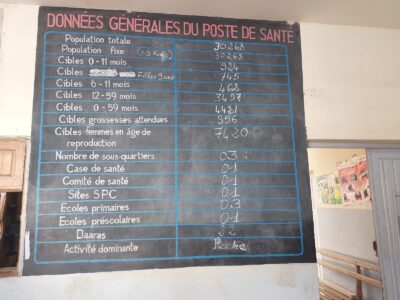 DONNÉES GÉNÉRALES DU POSTE DE SANTÉ
Population totale 30268
Population fixe 30268
Cibles 0-11 mois 924
Cibles mois Filles 9ans 745
Cibles 6-11 mois 462
Cibles 12-59 mois 3497
Cibles 0-59 mois 4421
Cibles grossesses attendues 956
Cibles femmes en âge de reproduction 7420
Nombre de sous-quartiers 03
Case de santé 01
Comité de santé 01
Sites SPC 01
Ecoles primaires 03
Ecoles préscolaires 01
Daaras 22
Activité dominante